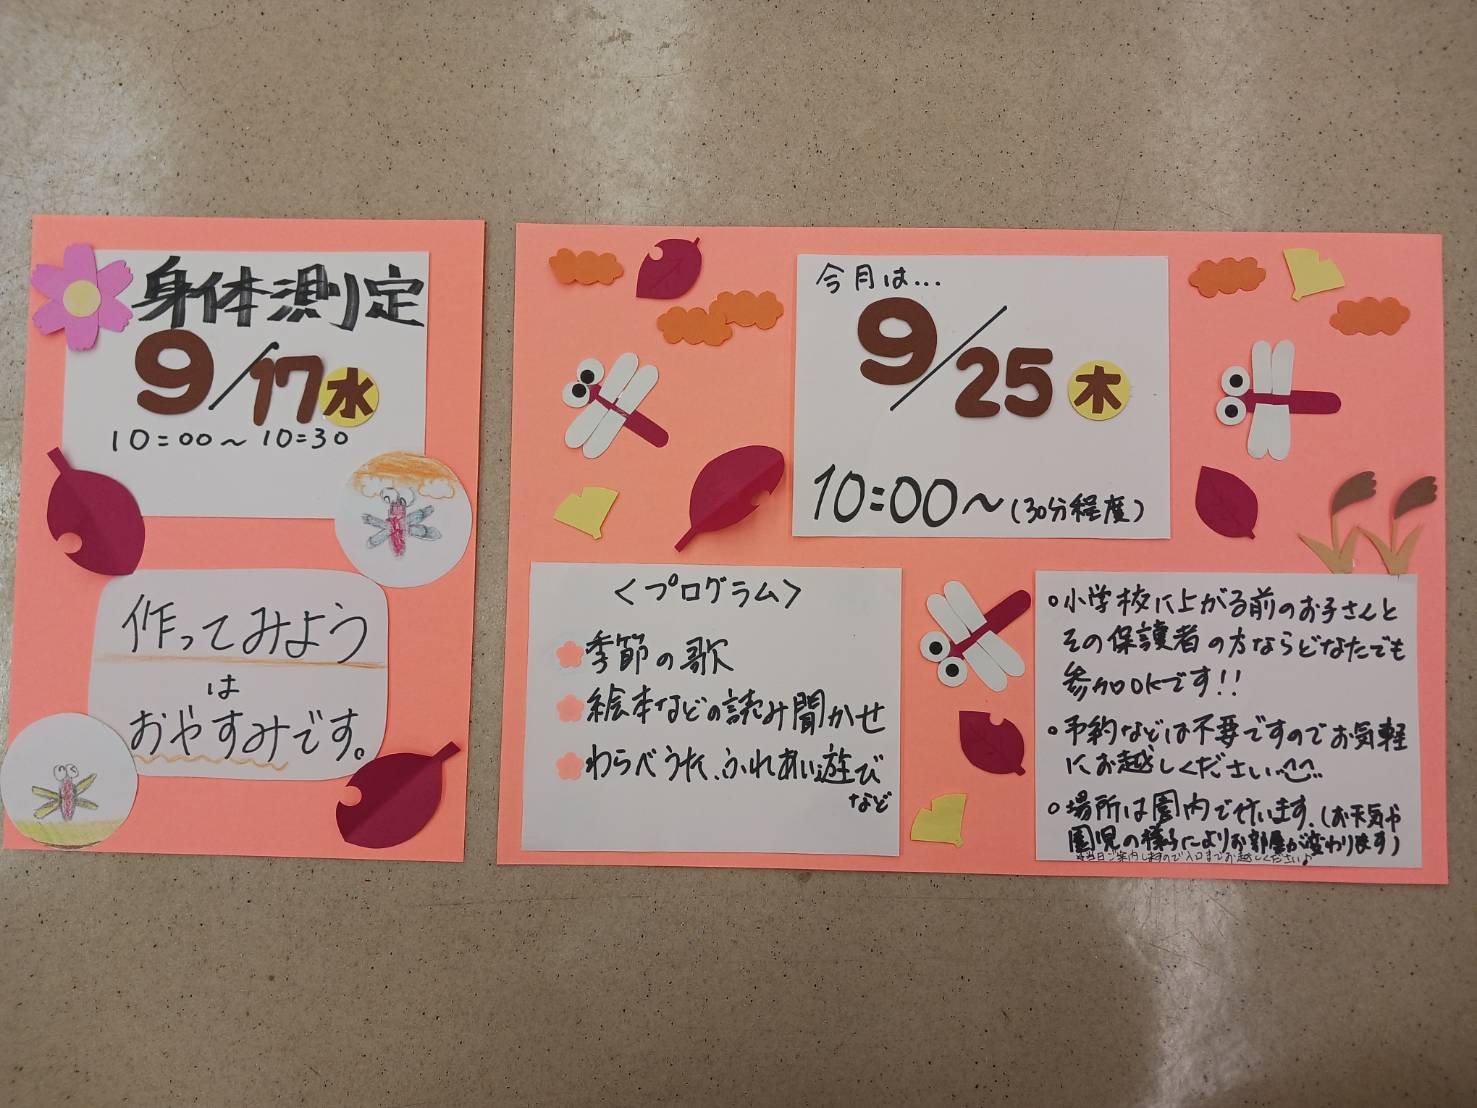 身体測定
9/17 水
10:00~10:30
作ってみよう
は
おやすみです。
今月は...
9/25 木
10:00~(30分程度)
<プログラム>
季節の歌
絵本などの読み聞かせ
わらべうた、ふれあい遊び
など
○小学校に上がる前のお子さんと
その保護者の方ならどなたでも
参加OKです!!
○予約などは不要ですのでお気軽
にお越しください^^
○場所は園内で行います。(お天気や
園児の様子によりお部屋が変わります)
※当日ご案内しますので入口までお越しください♪